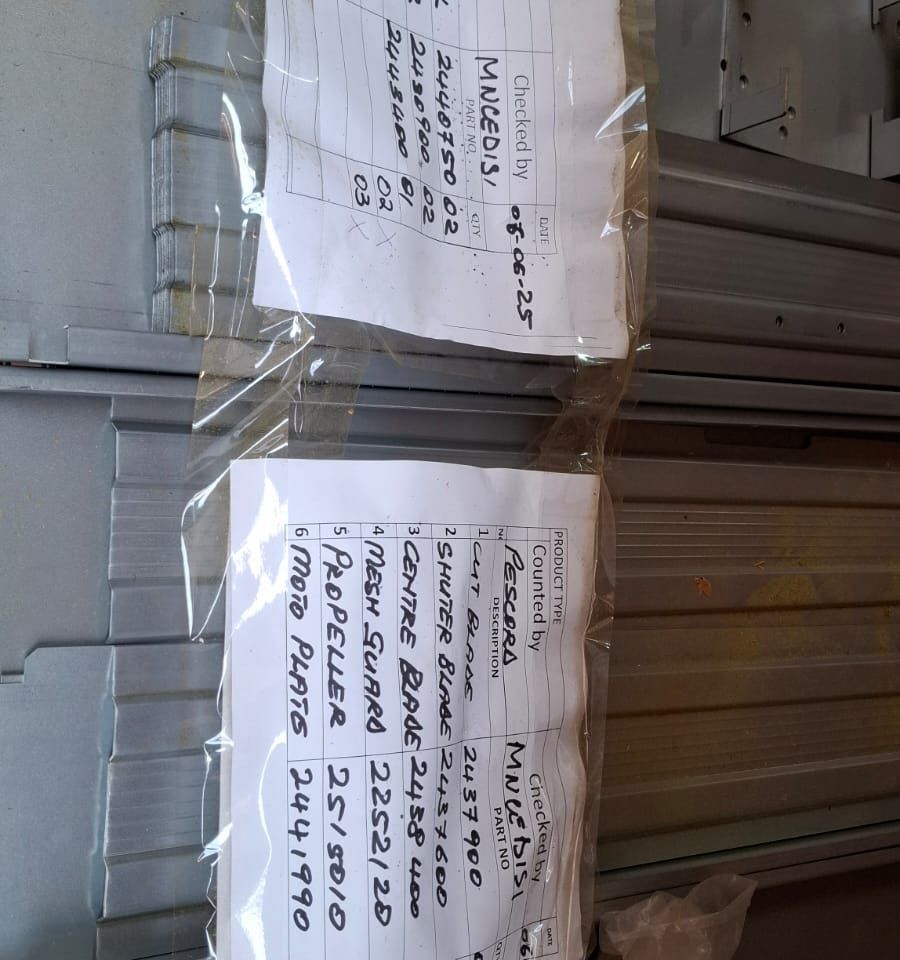 Checked by
DATE
MNCEDISI
08-06-25
PART NO
QTY
2440750 02
2430900 02
2443400 01
02 X
03 X
PRODUCT TYPE
Counted by
Checked by
DATE
PESCORD
MNCEDISI
DESCRIPTION
PART NO
1 CUT BLADE 2437900
2 SHUTER BLADE 2437600
3 CENTRE BLADE 2438400
4 MESH GUARD 2252120
5 PROPELLER 2515010
6 MOTO PLATE 2441990